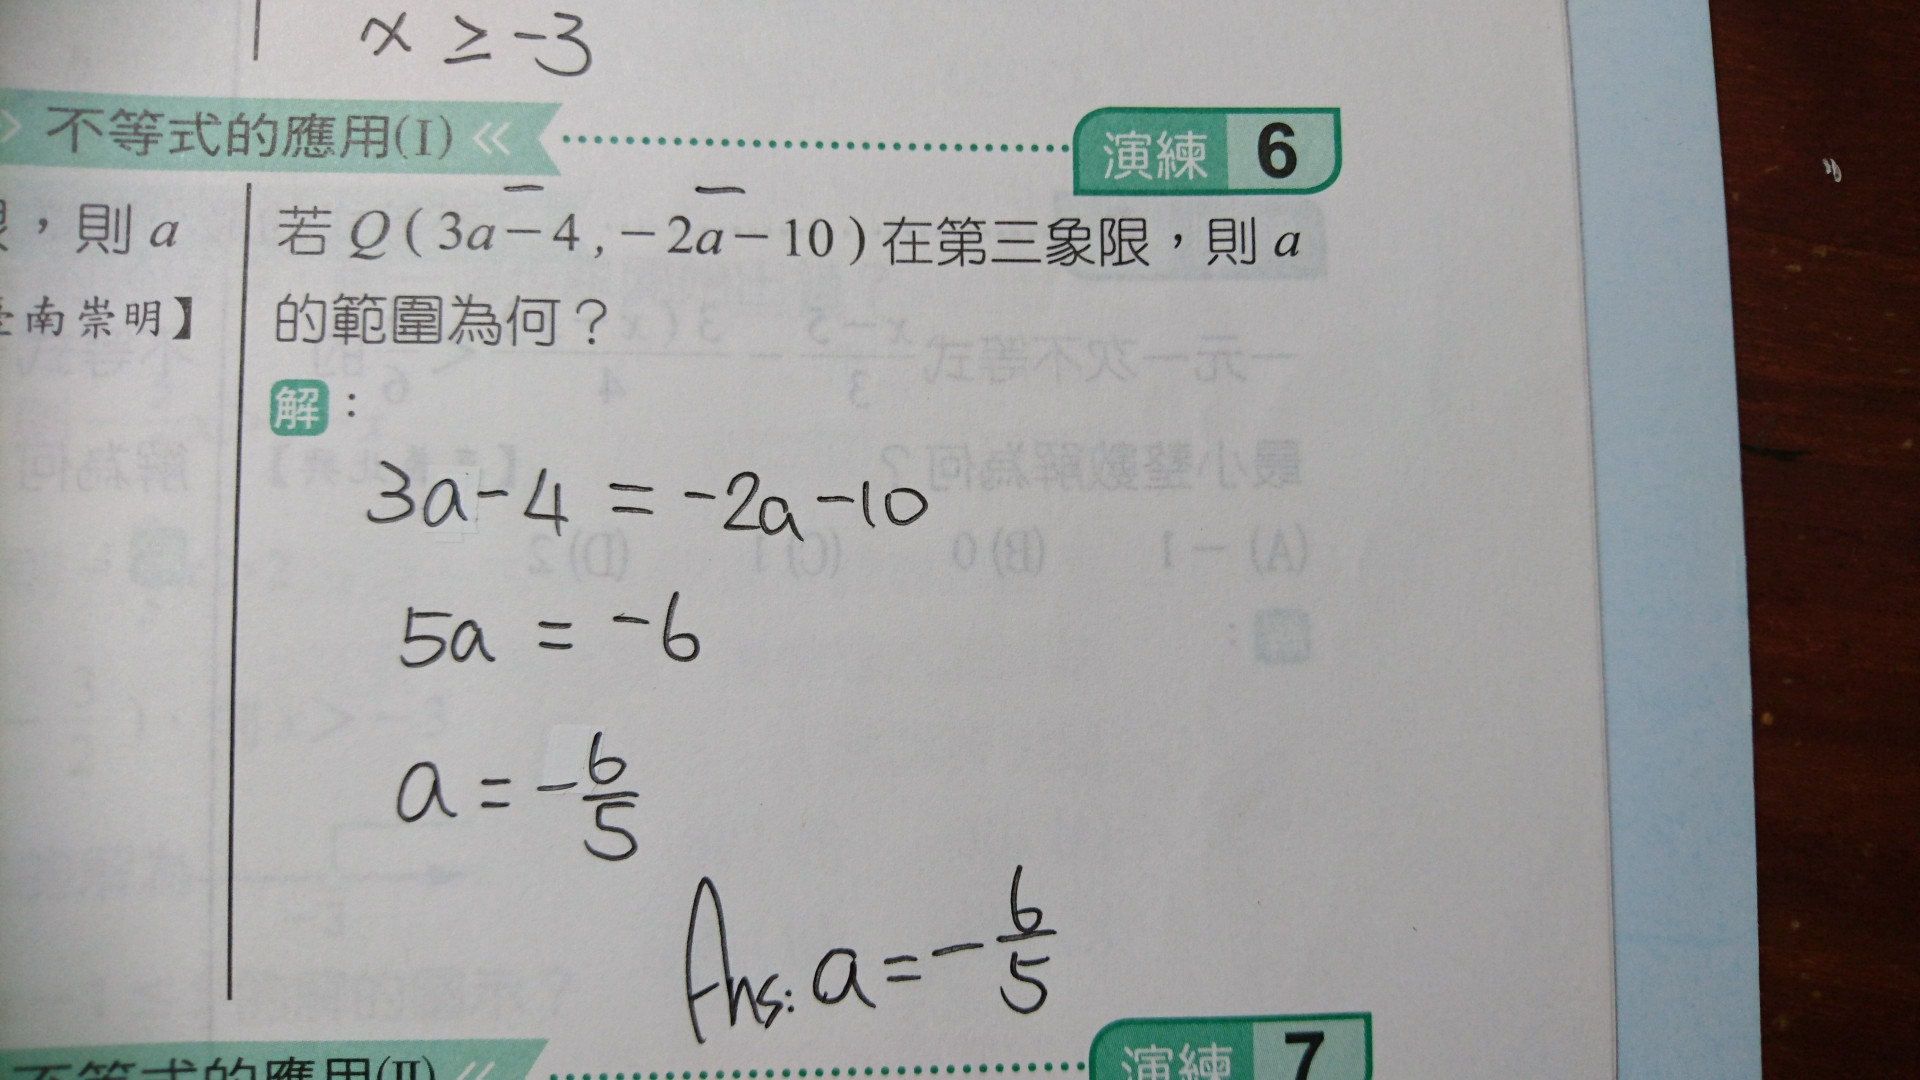 x ≥ -3
不等式的應用(I) «
演練 6
，則 a
南崇明】
若 Q ( 3a－4 , －2a－10 ) 在第三象限，則 a
的範圍為何？
解：
3a-4 = -2a-10
5a = -6
a = -6/5
Ans: a = -6/5
不等式的應用(II) «
演練 7